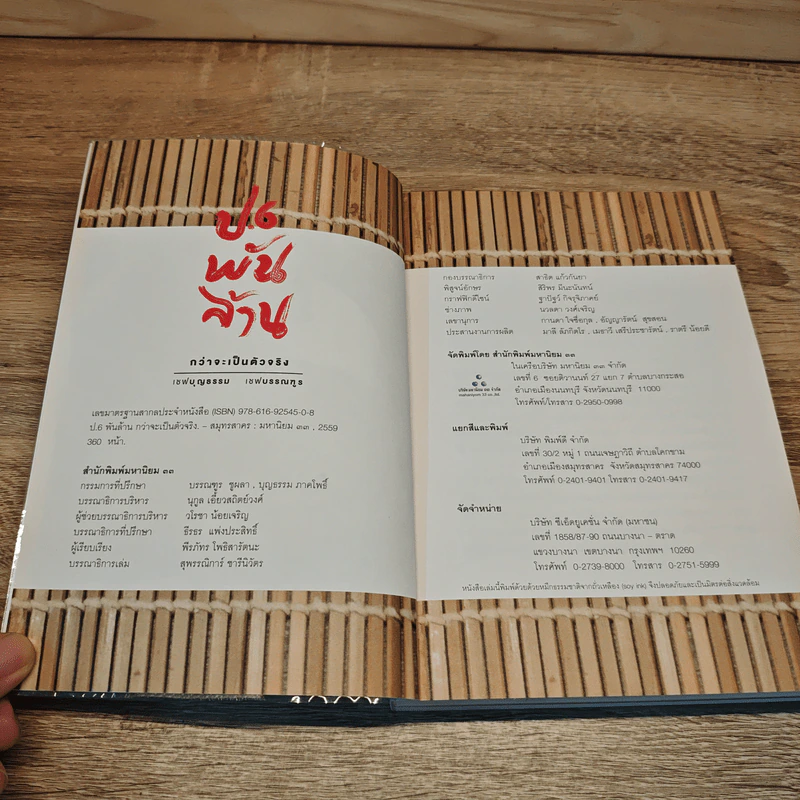 ป.6
พัน
ล้าน
กว่าจะเป็นตัวจริง
เชฟบุญธรรม เชฟบรรณฑูร
เลขมาตรฐานสากลประจำหนังสือ (ISBN) 978-616-92545-0-8
ป.6 พันล้าน กว่าจะเป็นตัวจริง. – สมุทรสาคร : มหานิยม ๓๓ , 2559
360 หน้า.
สำนักพิมพ์มหานิยม ๓๓
กรรมการที่ปรึกษา บรรณฑูร ชูผลา , บุญธรรม ภาคโพธิ์
บรรณาธิการบริหาร นุกูล เอี้ยวสถิตย์วงค์
ผู้ช่วยบรรณาธิการบริหาร วโรชา น้อยเจริญ
บรรณาธิการที่ปรึกษา ธีรธร แพ่งประสิทธิ์
ผู้เรียบเรียง พีรภัทร โพธิสารัตนะ
บรรณาธิการเล่ม สุพรรณิการ์ ชารีนิวัตร
กองบรรณาธิการ สาธิต แก้วกันยา
พิสูจน์อักษร สิริพร มีนะนันทน์
กราฟฟิกดีไซน์ ฐาปัฐว์ กิจรุจิภาคย์
ช่างภาพ นวลตา วงค์เจริญ
เลขานุการ กานดา ใจซื่อกุล , อัญญารัตน์ สุขสอน
ประสานงานการผลิต มาลี ลัภกิตโร , เมธาวี เสรีประชารัตน์ , ราตรี น้อยดี
จัดพิมพ์โดย สำนักพิมพ์มหานิยม ๓๓
ในเครือบริษัท มหานิยม ๓๓ จำกัด
บริษัท มหานิยม ๓๓ จำกัด
mahaniyom 33 co.,ltd.
เลขที่ 6 ซอยติวานนท์ 27 แยก 7 ตำบลบางกระสอ
อำเภอเมืองนนทบุรี จังหวัดนนทบุรี 11000
โทรศัพท์/โทรสาร 0-2950-0998
แยกสีและพิมพ์
บริษัท พิมพ์ดี จำกัด
เลขที่ 30/2 หมู่ 1 ถนนเจษฎาวิถี ตำบลโคกขาม
อำเภอเมืองสมุทรสาคร จังหวัดสมุทรสาคร 74000
โทรศัพท์ 0-2401-9401 โทรสาร 0-2401-9417
จัดจำหน่าย
บริษัท ซีเอ็ดยูเคชั่น จำกัด (มหาชน)
เลขที่ 1858/87-90 ถนนบางนา – ตราด
แขวงบางนา เขตบางนา กรุงเทพฯ 10260
โทรศัพท์ 0-2739-8000 โทรสาร 0-2751-5999
หนังสือเล่มนี้พิมพ์ด้วยด้วยหมึกธรรมชาติจากถั่วเหลือง (soy ink) จึงปลอดภัยและเป็นมิตรต่อสิ่งแวดล้อม